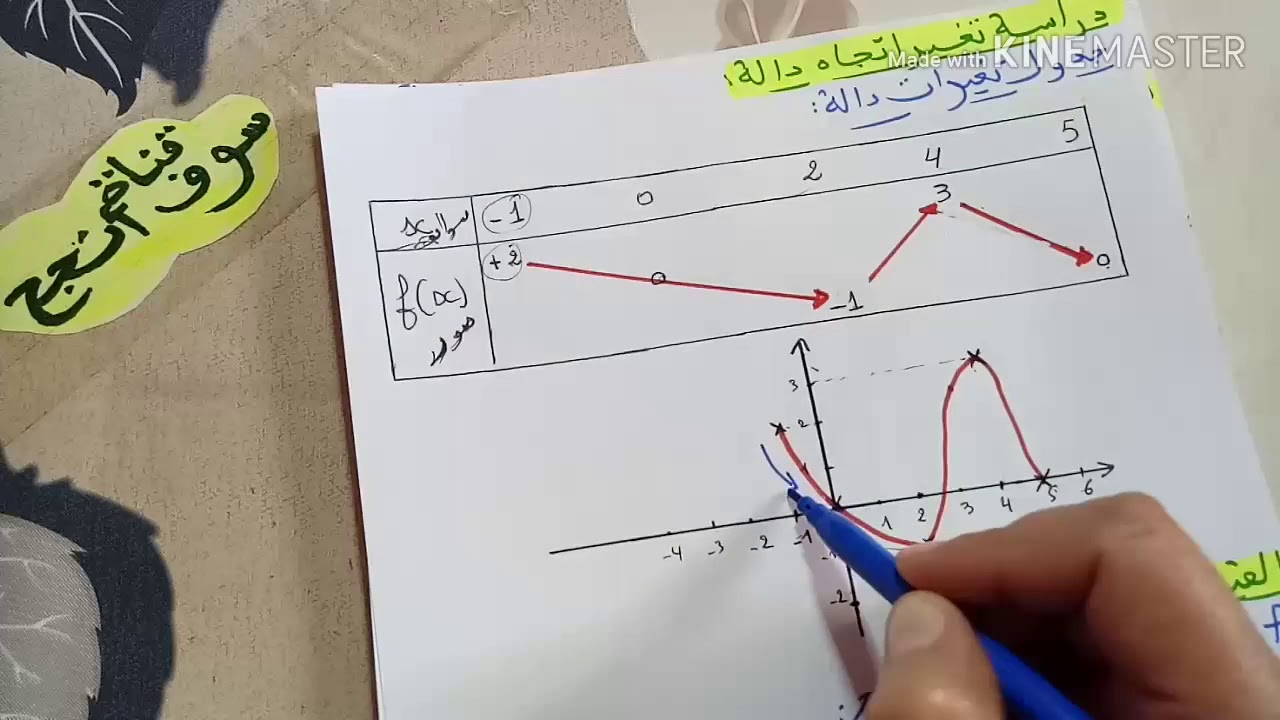 دراسة تغير اتجاه دالة:
Made with KINEMASTER
جدول تغيرات دالة:
x -1 0 2 4 5
f(x) +2 0 -1 3 0
صور
3
2
1
-4 -3 -2 -1 1 2 3 4 5 6
-1
-2